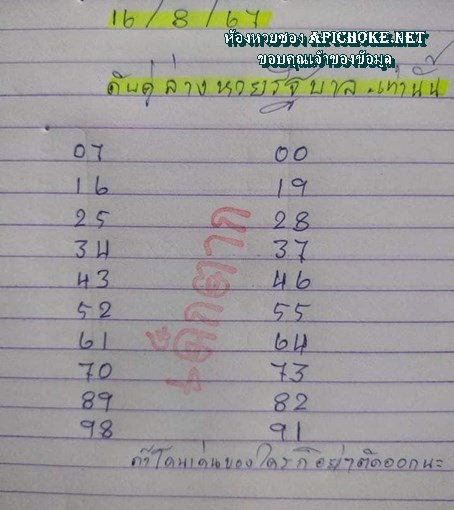 16/8/67
ห้องหวยซอง APICHOKE.NET
ขอบคุณเจ้าของข้อมูล
ดับคู่ล่างหวยรัฐบาลเท่านั้น
07 00
16 19
25 28
34 37
43 46
52 55
61 64
70 73
89 82
98 91
ถ้าโดนเด่นของใครก็อย่าตัดออกนะ